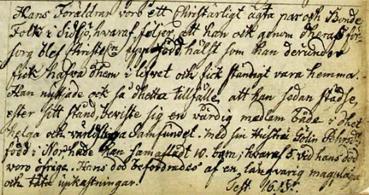 Hans Föräldrar voro ett Christärligt ägta par och Bonde
Folk i hvaraf följer att han ock genom deras för
sorg blef Christelig uppfödd hälst som han derunder
fick hafva dhem i lifvet och fick ständigt vara hemma.
Han nyttjade ock så detta tillfälle, att han sedan städse,
efter sitt stånd, beviste sig en värdig medlem både i det
helga och verldsliga Samfundet. Med sin Hustru
i Norrhede han samaflade 10. barn, hvaraf 5. vid hans död
voro öfrige. Hans död befordrades af en långvarig magplåga
och täta upkastningar.